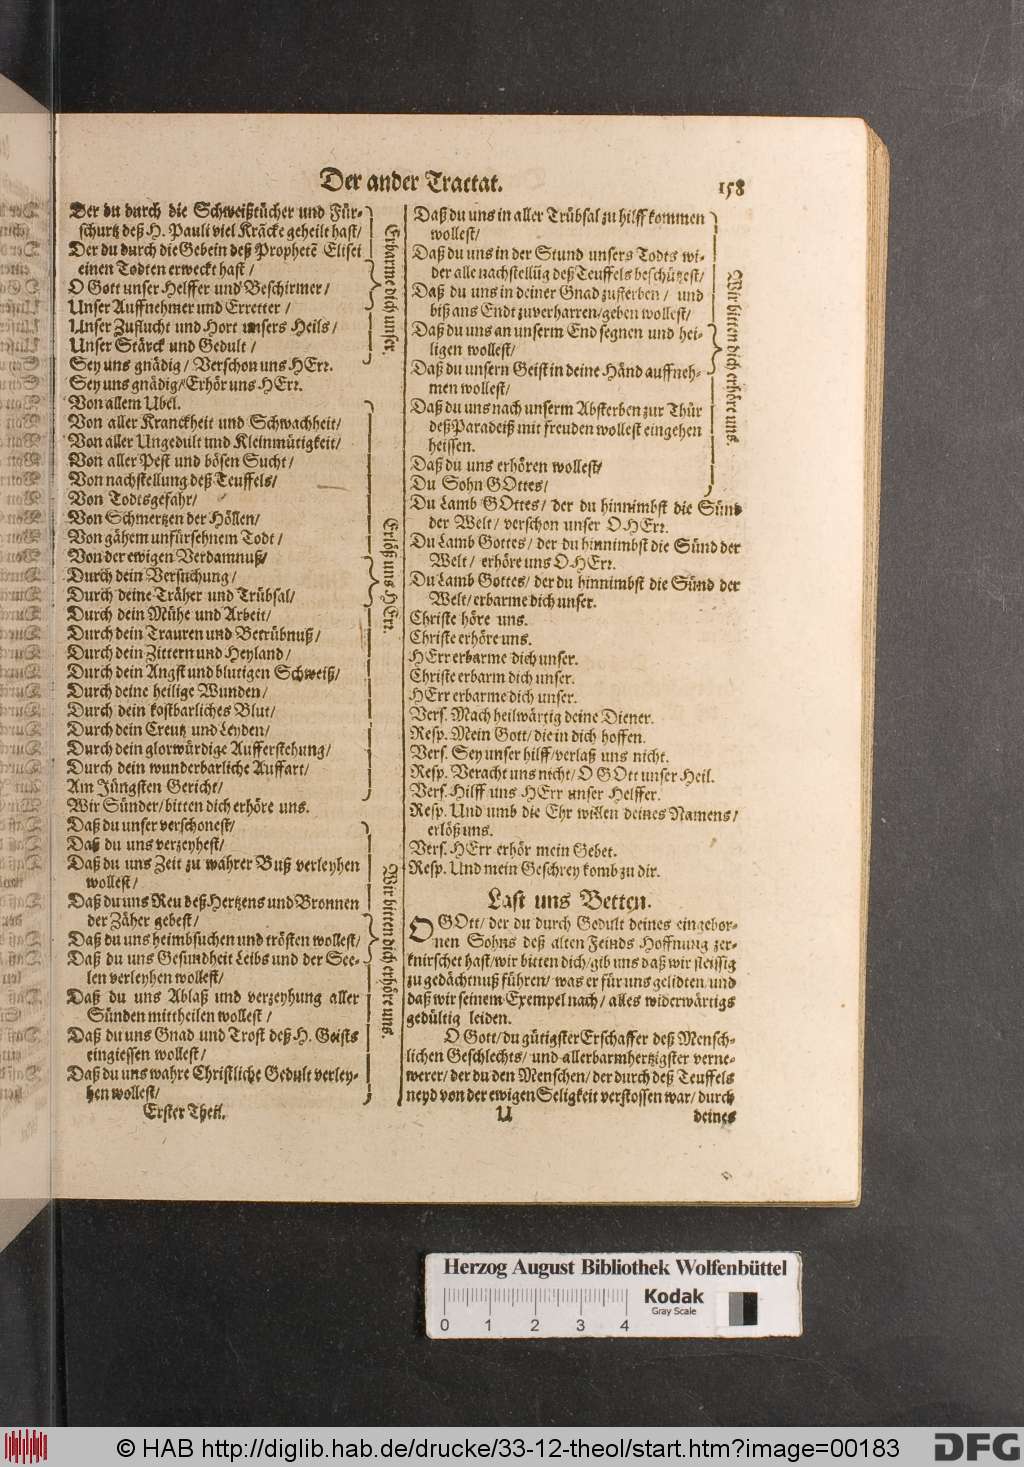 Der ander Tractat. 158
Der du durch die Schweißtücher und Für-
schurtz deß H. Pauli viel Kräcke geheilt hast/
Der du durch die Gebein deß Prophetẽ Elisei
einen Todten erweckt hast/
O Gott unser Helffer und Beschirmer/
Unser Auffnehmer und Erretter/
Unser Zuflucht und Hort unsers Heils/
Unser Stärck und Gedult/
Sey uns gnädig/ Verschon uns HErr.
Erbarme dich unser.
Sey uns gnädig/ Erhör uns HErr.
Von allem Ubel.
Von aller Kranckheit und Schwachheit/
Von aller Ungedult und Kleinmütigkeit/
Von aller Pest und bösen Sucht/
Von nachstellung deß Teuffels/
Von Todtsgefahr/
Von Schmertzen der Höllen/
Von gähem unfürsehnem Todt/
Von der ewigen Verdamnuß/
Durch dein Versuchung/
Durch deine Träher und Trübsal/
Durch dein Mühe und Arbeit/
Durch dein Trauren und Betrübnuß/
Durch dein Zittern und Heyland/
Durch dein Angst und blutigen Schweiß/
Durch deine heilige Wunden/
Durch dein kostbarliches Blut/
Durch dein Creutz und Leyden/
Durch dein glorwürdige Aufferstehung/
Durch dein wunderbarliche Auffart/
Am Jüngsten Gericht/
Erlöß uns HErr.
Wir Sünder/ bitten dich erhöre uns.
Daß du unser verschonest/
Daß du uns verzeyhest/
Daß du uns Zeit zu wahrer Buß verleyhen
wollest/
Daß du uns Reu deß Hertzens und Bronnen
der Zäher gebest/
Daß du uns heimbsuchen und trösten wollest/
Daß du uns Gesundheit Leibs und der See-
len verleyhen wollest/
Daß du uns Ablaß und verzeyhung aller
Sünden mittheilen wollest/
Daß du uns Gnad und Trost deß H. Geists
eingiessen wollest/
Daß du uns wahre Christliche Gedult verley-
hen wollest/
Wir bitten dich erhöre uns.
Erster Theil.
Daß du uns in aller Trübsal zu hilff kommen
wollest/
Daß du uns in der Stund unsers Todts wi-
der alle nachstellũg deß Teuffels beschützest/
Daß du uns in deiner Gnad zusterben/ und
biß ans Endt zuverharren/ geben wollest/
Daß du uns an unserm End segnen und hei-
ligen wollest/
Daß du unsern Geist in deine Händ auffneh-
men wollest/
Daß du uns nach unserm Absterben zur Thür
deß Paradeiß mit freuden wollest eingehen
heissen.
Daß du uns erhören wollest/
Du Sohn GOttes/
Wir bitten dich erhöre uns.
Du Lamb GOttes/ der du hinnimbst die Sünd
der Welt/ verschon unser O HErr.
Du Lamb Gottes/ der du hinnimbst die Sünd der
Welt/ erhöre uns O HErr.
Du Lamb Gottes/ der du hinnimbst die Sünd der
Welt/ erbarme dich unser.
Christe höre uns.
Christe erhöre uns.
HErr erbarme dich unser.
Christe erbarm dich unser.
HErr erbarme dich unser.
Vers. Mach heilwärtig deine Diener.
Resp. Mein Gott/ die in dich hoffen.
Vers. Sey unser hilff/ verlaß uns nicht.
Resp. Veracht uns nicht/ O GOtt unser Heil.
Vers. Hilff uns HErr unser Helffer.
Resp. Und umb die Ehr willen deines Namens/
erlöß uns.
Vers. HErr erhör mein Gebet.
Resp. Und mein Geschrey komb zu dir.
Last uns Betten.
O GOtt/ der du durch Gedult deines eingebor-
nen Sohns deß alten Feinds Hoffnung zer-
knirschet hast/ wir bitten dich/ gib uns daß wir fleissig
zu gedächtnuß führen/ was er für uns gelidten/ und
daß wir seinem Exempel nach/ alles widerwärtigs
gedültig leiden.
O Gott/ du gütigster Erschaffer deß Mensch-
lichen Geschlechts/ und allerbarmhertzigster verne-
werer/ der du den Menschen/ der durch deß Teuffels
neyd von der ewigen Seligkeit verstossen war/ durch
U deines
Herzog August Bibliothek Wolfenbüttel
Kodak
Gray Scale
0 1 2 3 4
© HAB http://diglib.hab.de/drucke/33-12-theol/start.htm?image=00183
DFG